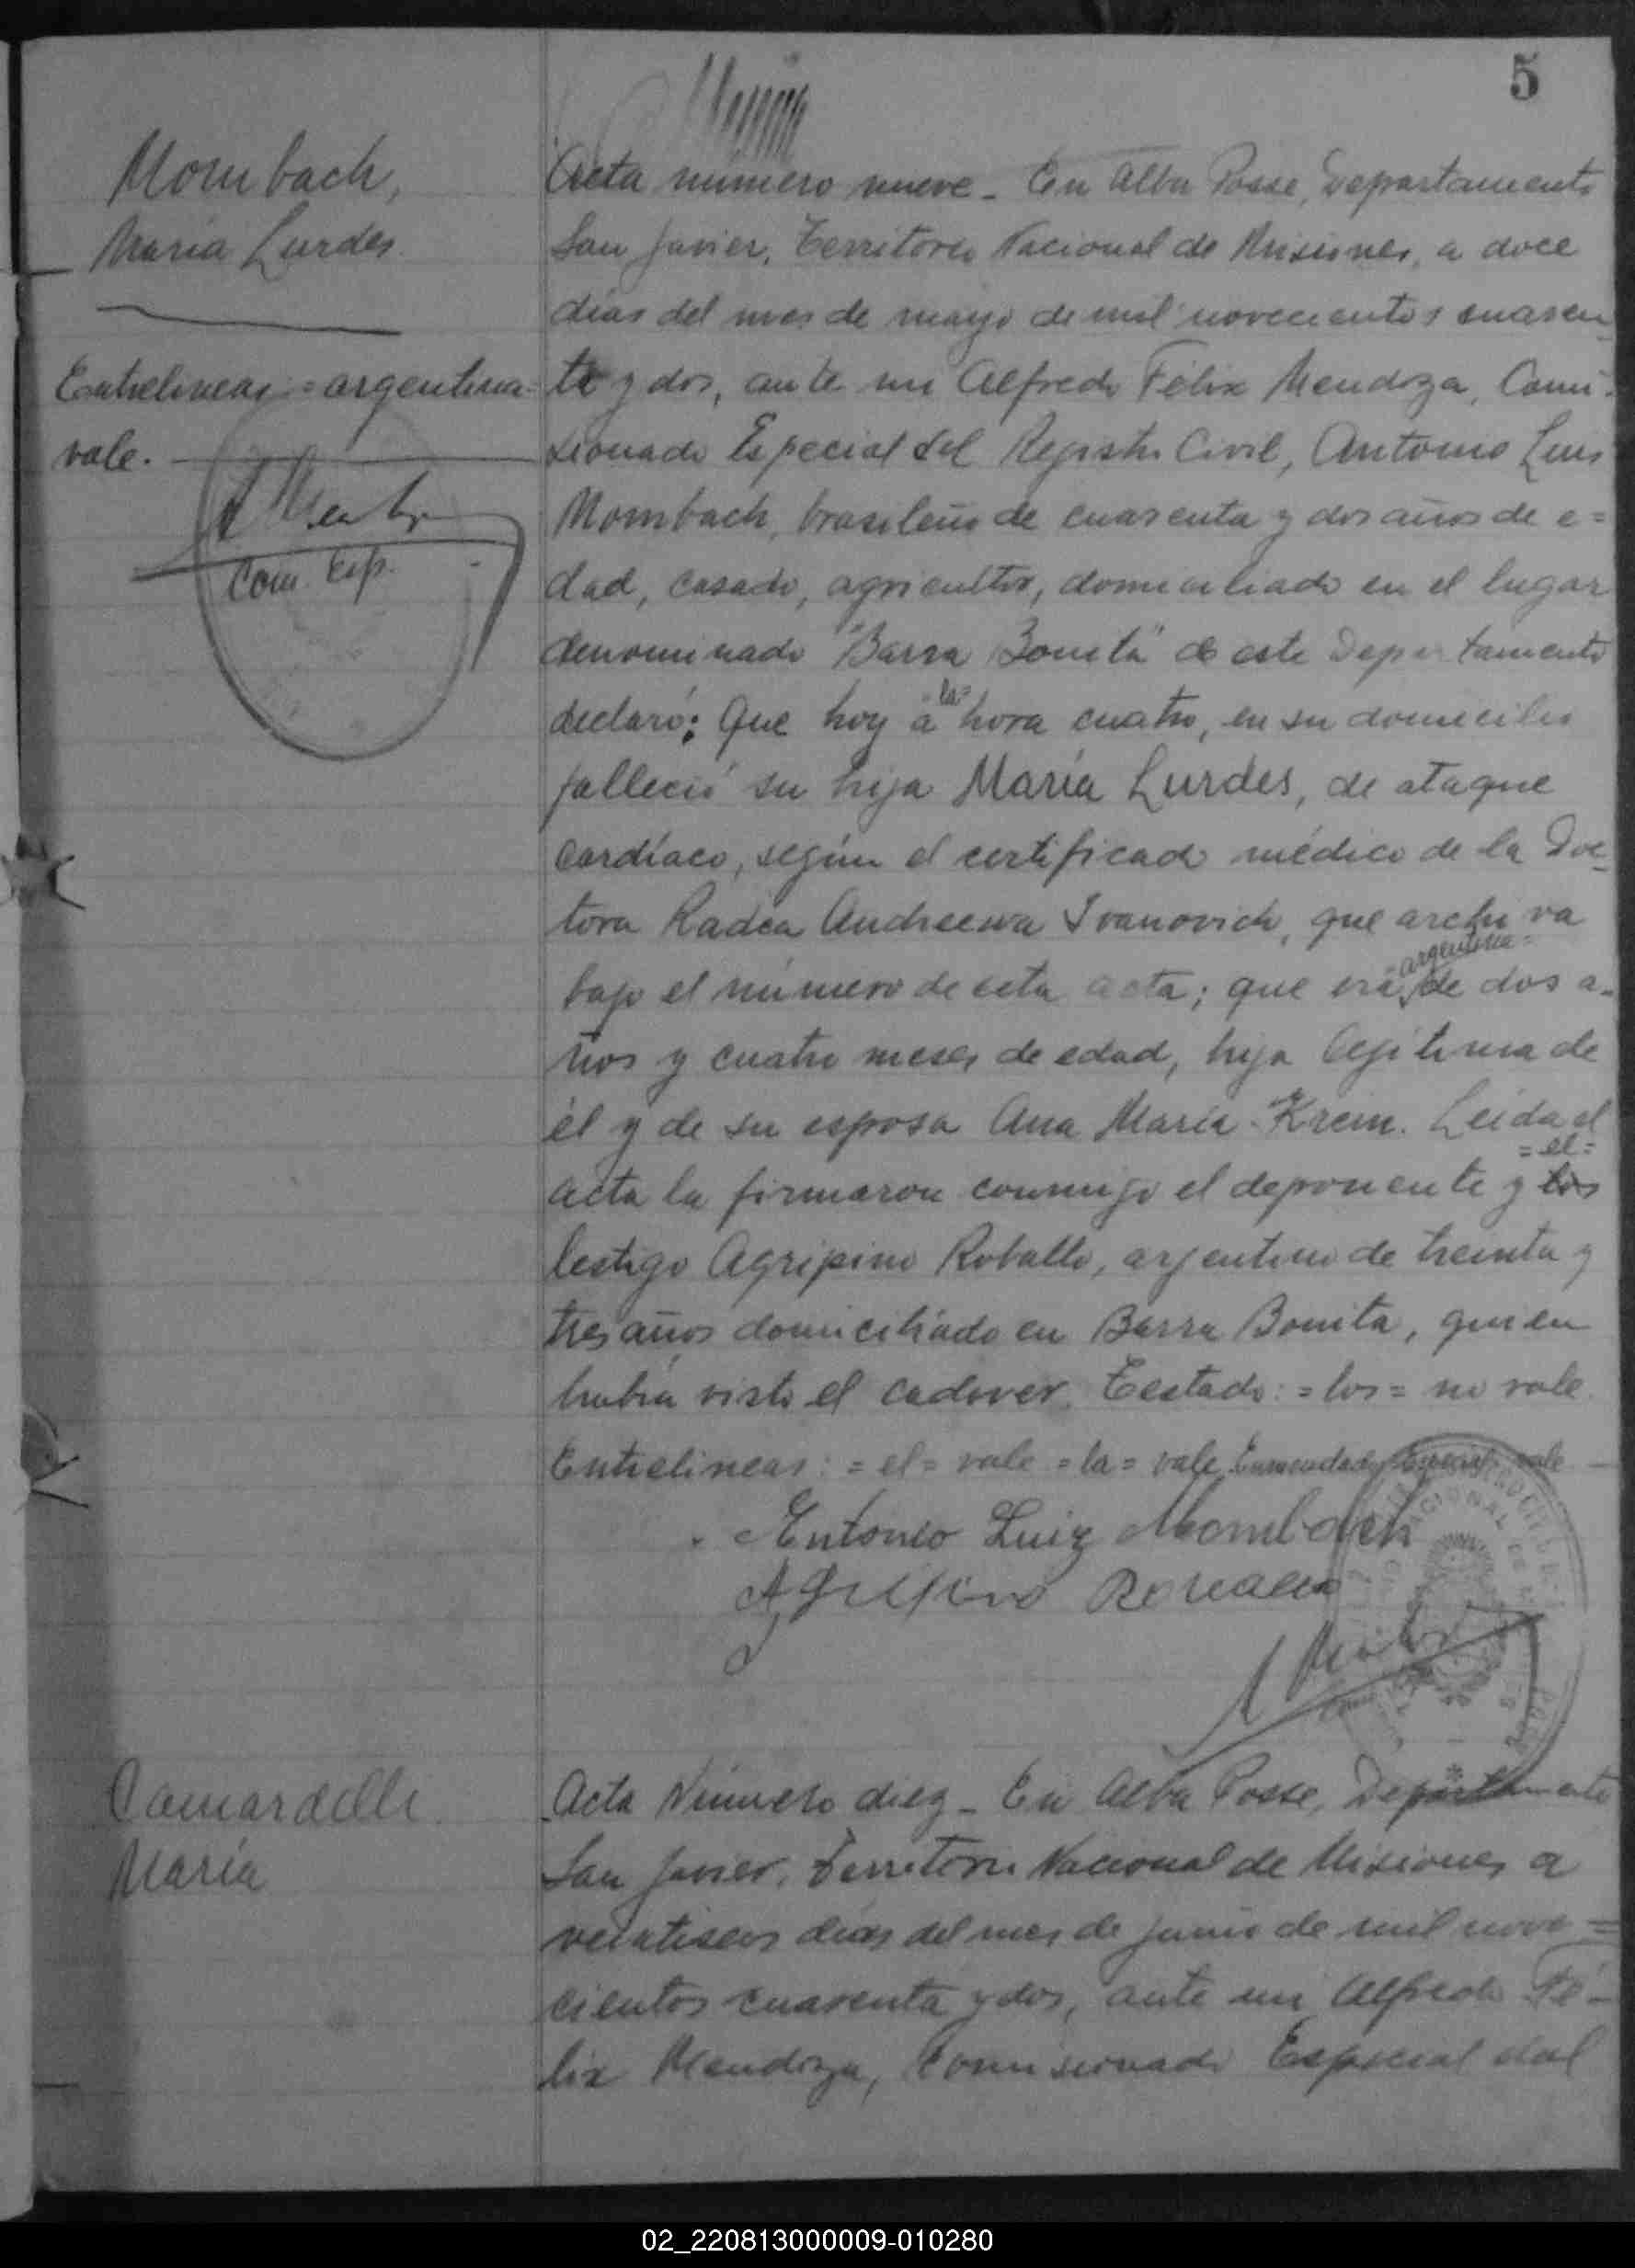 5
Mombach,
María Lurdes.
Entrelineas: =argentina=
vale.
Com. Esp.
Acta número nueve - En Alba Posse, Departamento
San Javier, Territorio Nacional de Misiones, a doce
días del mes de mayo de mil novecientos cuaren
ta y dos, ante mi Alfredo Félix Mendoza, Comi-
sionado Especial del Registro Civil, Antonio Luis
Mombach, brasileño de cuarenta y dos años de e=
dad, casado, agricultor, domiciliado en el lugar
denominado "Barra Bonita" de este Departamento
=la=
declaró: Que hoy a hora cuatro, en su domicilio
falleció su hija María Lurdes, de ataque
cardíaco, según el certificado médico de la Doc-
tora Radea Andreewa Ivanovich, que archiva
=argentina=
bajo el número de esta acta; que era, de dos a-
ños y cuatro meses de edad, hija legitima de
él y de su esposa Ana María Krein. Leida el
=el=
acta la firmaron conmigo el deponente y los
testigo Agripino Roballo, argentino de treinta y
tres años domiciliado en Barra Bonita, quien
había visto el cadaver. Testado: =los= no vale
Entrelineas: =el= vale =la= vale. Enmendado vale
Antonio Luiz Mombach
Camardelli
María
Acta Número diez - En Alba Posse, Departamento
San Javier, Territorio Nacional de Misiones a
veintiseis días del mes de junio de mil nove=
cientos cuarenta y dos, ante mi Alfredo Fé-
lix Mendoza, Comisionado Especial del
02_220813000009-010280